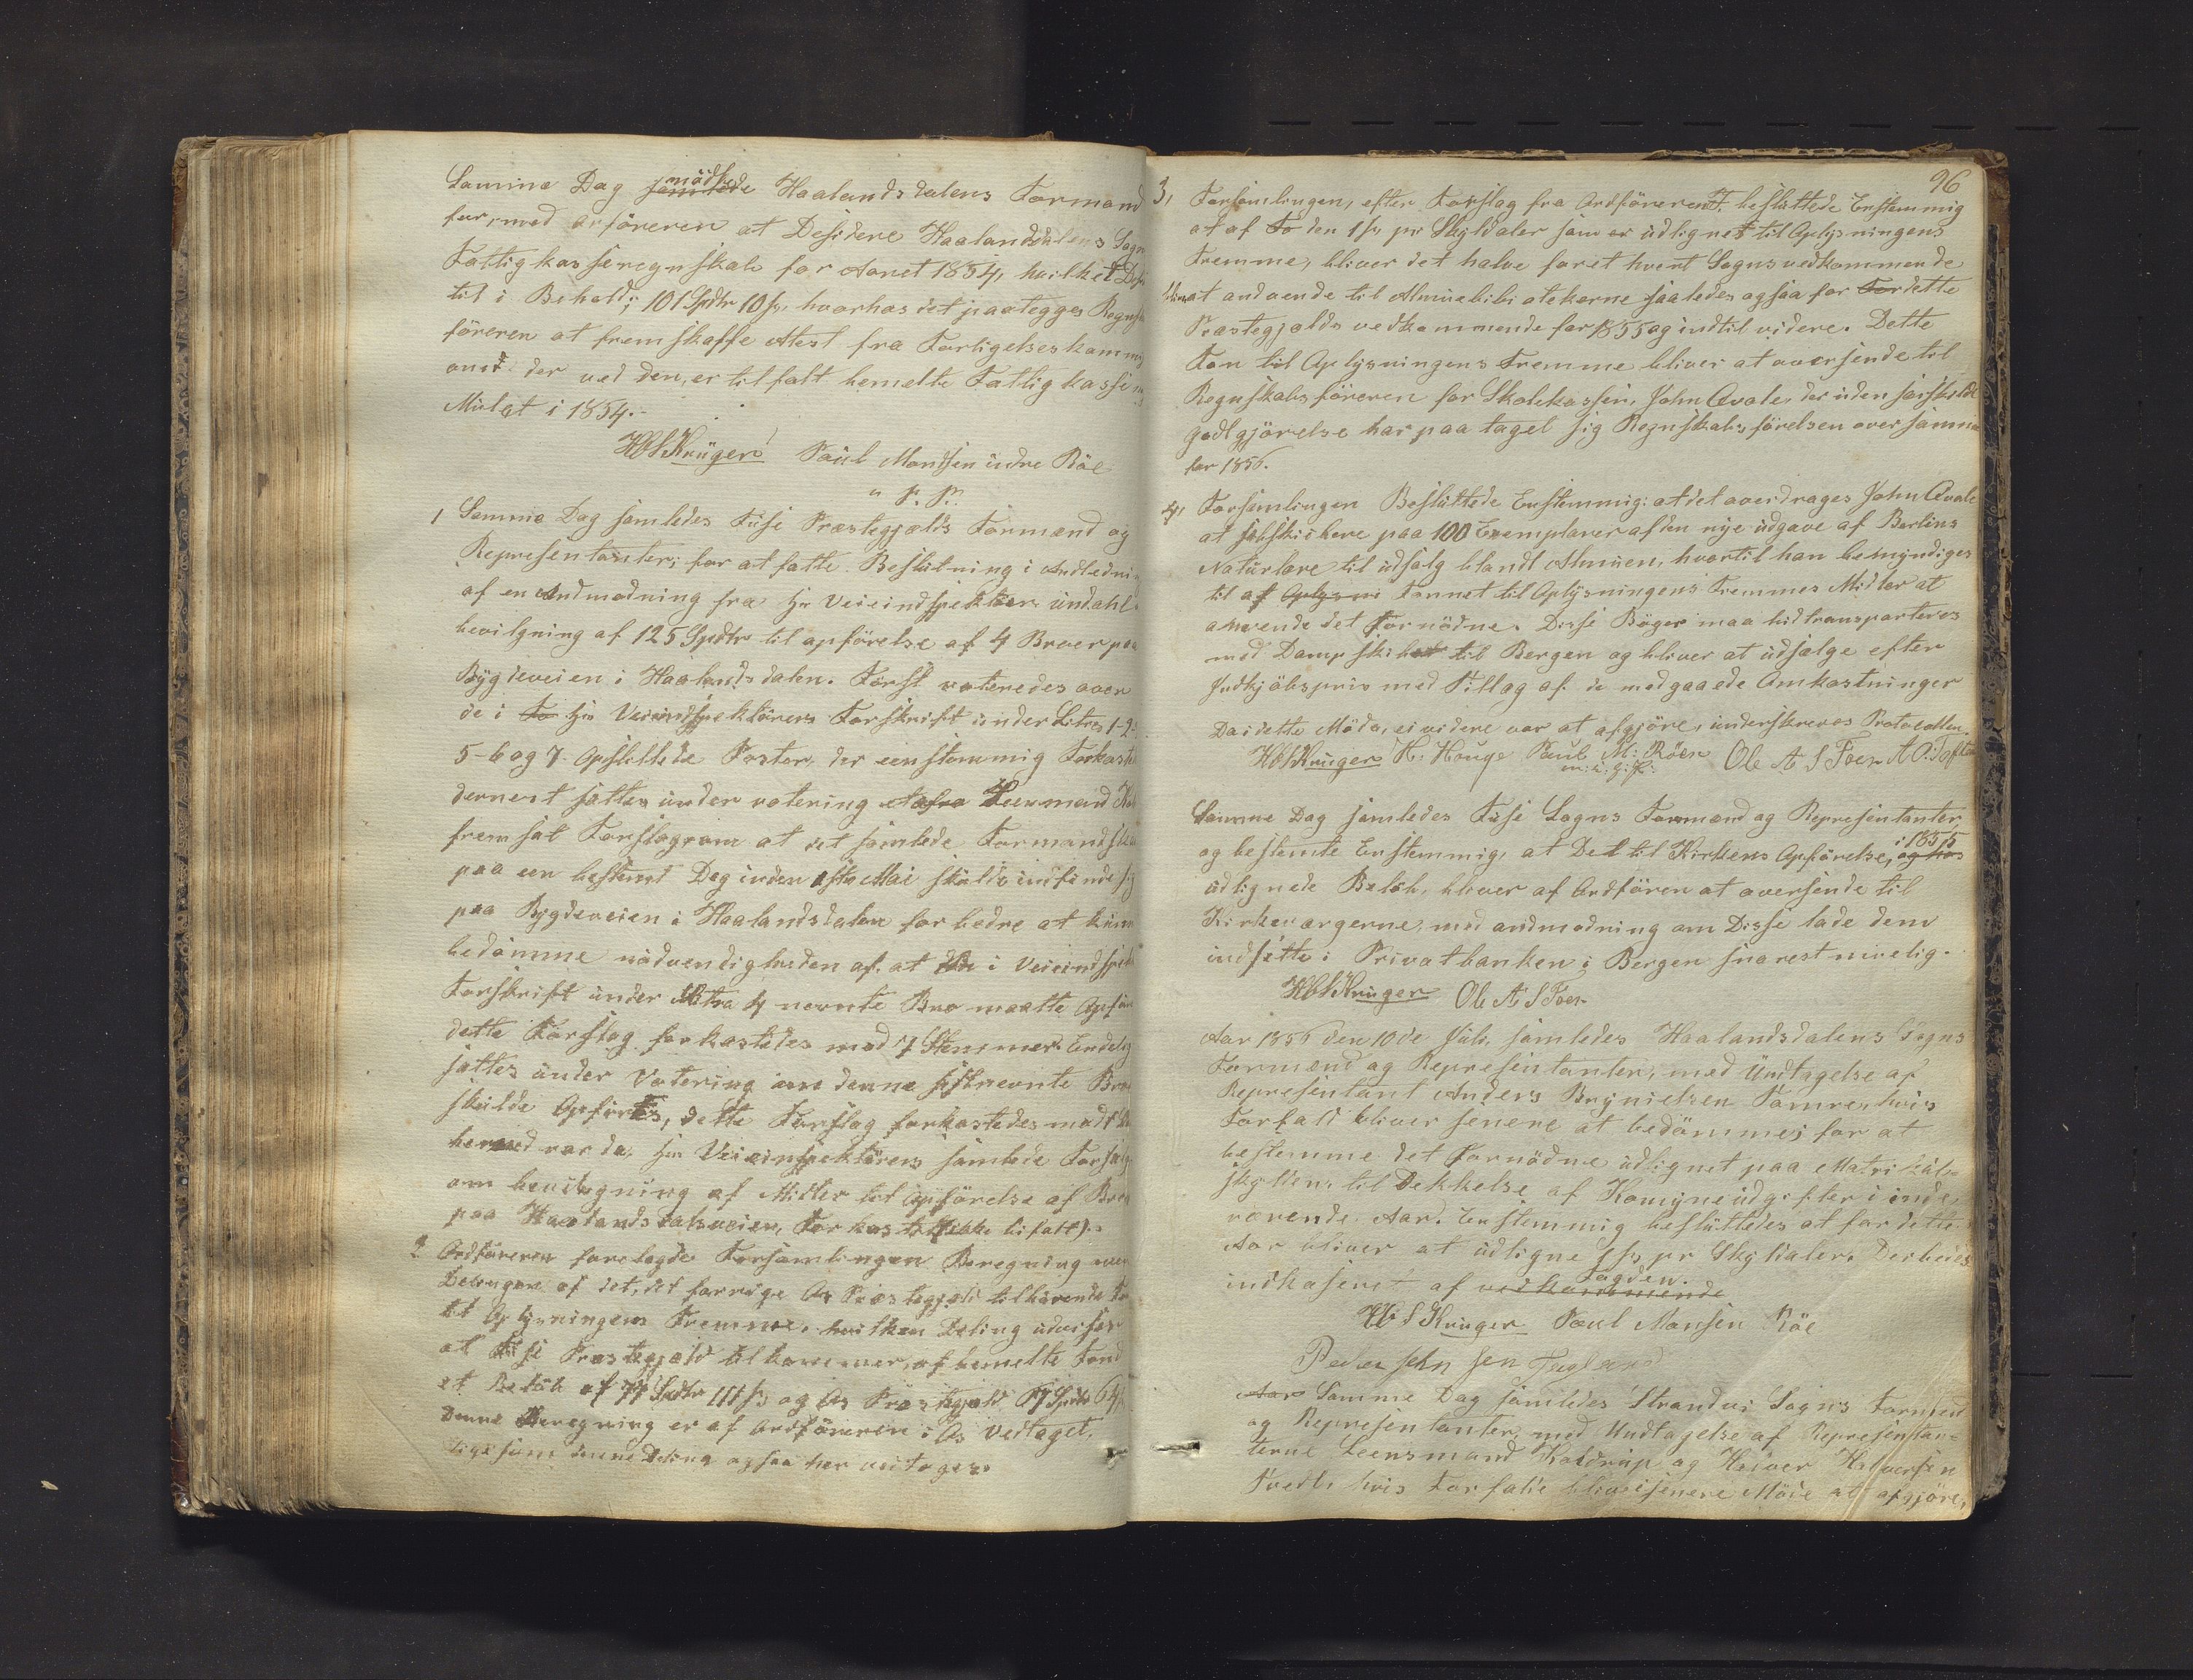 Samme Dag mödte Haalandsdalens Formænd
for, med orföreren at Desidere Haalandsdalens Sogn
Fattigkasseregnskab for Aaret 1854, hvilket
til i Behold; 101 Spdlr 10 s, hvorhos det paalegges Regnsk
föreren at fremskaffe Attest fra Forligelseskommi
onst der ved den, er tilfalt bemelte Fattigkasse
Mulct i 1854.-
HOS Krüger Paul Mondsen indre Röe
m. p. p.
1 Samme Dag samledes Fuse Præstegjælds Formænd og
Representanter; for at fatte Beslutning i Andledning
af en Andmodning fra Hr Veieindspektör
bevilgning af 125 Spdlr til opförelse af 4 Broer paa
Bygdeveien i Haalandsdalen. Först voteredes over
de i Hr Veieindspektörens Forskrift under Litra 1-2-
5-6 og 7. Opstillede Poster, der eenstemmig Forkast
dernest sattes under votering Leensmand
fremsat Forslag om at det samlede Formandska
paa een bestemt Dag inden 1ste Mai skulde indfinde sig
paa Bygdeveien i Haalandsdalen for bedre at kunn
bedömme nödvendigheden af. at den i Veieindspekt
Forskrift under Litra 4 nevnte Bro maatte Opför
dette Forslag forkastedes med 7 Stemmer. Endelig
sattes under Votering om denne sistnevnte Bro
skulde Opföres, dette Forslag forkastedes med
hermed var da, Hr Veieinspektörens samlede Forslag
om bevilgning af Midler til Opförelse af Broer
paa Haalandsdalsveien, Forkastet (ikke bifalt).
2 Ordföreren forelagde Forsamlingen Beregning over
Delingen af det, det forrige Os Præstegjæld tilhörende Fon
til Oplysningens Fremme, hvilken Deling udviser
at Fuse Præstegjæld tilkommer, af bemelte Fond
et Belöb af 77 Spdlr 111 s, og Os Præstegjæld 67 Spdlr 64 s,
Denne Beregning er af Ordföreren i Os Vedtaget,
ligesom denne Deling ogsaa her vedtages.
96
3, Forsamlingen, efter Forslag fra Ordföreren, besluttede Enstemmig
at af den 1 s, pr Skyldaler som er udlignet til Oplysningens
Fremme, bliver det halve foret hvert Sogns vedkommende
at andvende til Almuebibliotekerne saaledes ogsaa for dette
Præstegjælds vedkommende for 1855 og indtil videre. Dette
Fon til Oplysningens Fremme bliver at oversende til
Regnskabsföreren for Skolekassen, John Qvale, der uden særskilde
godtgjörelse har paa taget sig Regnskabsförelsen over samme
for 1856.
4, Forsamlingen Besluttede Enstemmig: at det overdrages John Qvale
at subskribere paa 100 Exemplarer af den nye udgave af Berlins
Naturlære til udsalg blandt Almuen, hvortil han bemyndiges
til af Oplysni Fonnet til Oplysningens Fremmes Midler at
anvende det Fornödne. Disse Böger maa hidtransporteres
med Dampskibet til Bergen og bliver at udsælge efter
Indkjöbspris med Tillag af. de medgaaede Omkostninger
Da i dette Möde, ei videre var at afgjöre, underskreves Protocollen.
HOS Krüger H. Hauge Paul M: Röen Ole A S Foen A O: Tofte
m. i. h. P.
Samme Dag samledes Fuse Sogns Formænd og Representanter,
og bestemte Enstemmig, at Det til Kirkens Opförelse, i 1855 og hos
udlignede Belöb, bliver af Ordfören at oversende til
Kirkeværgerne, med andmodning om Disse lade dem
indsette i Privatbanken i Bergen snarest muelig.
HOS Krüger Ole A S Foen
Aar 1856 den 10de Juli, samledes Haalandsdalens Sogns
Formænd og Representanter, med Undtagelse af
Representant Anders Brynielsen Tömre, hvis
Forfald bliver senere at bedömme; for at
bestemme det Fornödne udlignet paa Matrikül-
skylden, til Dekkelse af Komuneudgifter i inde,
værende Aar. Enstemmig besluttedes at for dette
Aar bliver at udligne 1 s, pr Skyldaler. Der beides
indkaseret af vedkommende Fogden.
HOS Krüger Paul Monsen Röe
Peder Johnsen Tegland
Aar Samme Dag samledes Strandvi Sogns Formænd
og Representanter, med Undtagelse af Representan-
terne Leensmand Koldrup og Heiver Halversen
Tvedt, hvis Forfald bliver senere Möde at afgjöre,